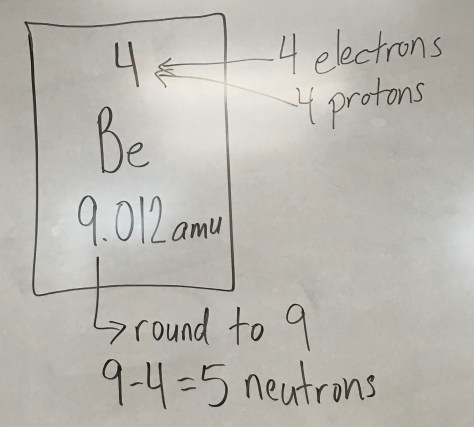 4
4 electrons
4 protons
Be
9.012 amu
round to 9
9-4=5 neutrons